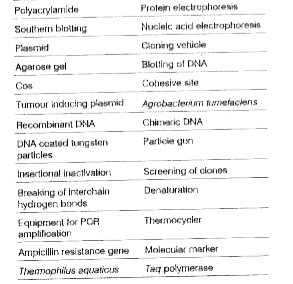 Polyacrylamide Protein electrophoresis
Southern blotting Nucleic acid electrophoresis
Plasmid Cloning vehicle
Agarose gel Blotting of DNA
Cos Cohesive site
Tumour inducing plasmid Agrobacterium tumefaciens
Recombinant DNA Chimeric DNA
DNA coated tungsten Particle gun
particles
Insertional inactivation Screening of clones
Breaking of interchain Denaturation
hydrogen bonds
Equipment for PCR Thermocycler
amplification
Ampicillin resistance gene Molecular marker
Thermophilus aquaticus Taq polymerase